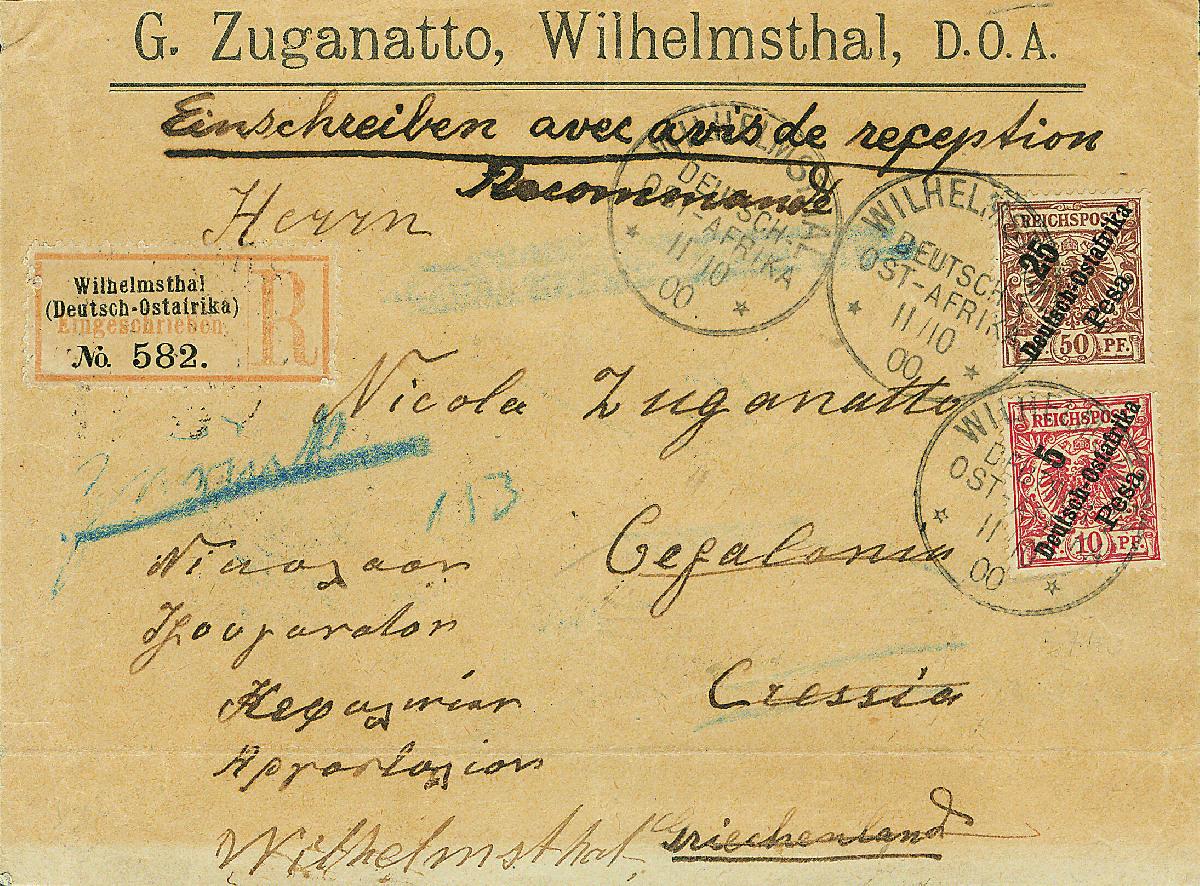 G. Zuganatto, Wilhelmsthal, D.O.A.
Einschreiben avec avis de reception
Recommandé
Herrn
WILHELMSTHAL
DEUTSCH-
OST-AFRIKA
11/10
00
WILHELMS
DEUTSCH
OST-AFRIKA
11/10
00
REICHSPOST
25
Deutsch-Ostafrika
Pesa
50 PF.
Wilhelmsthal
(Deutsch-Ostafrika)
Eingeschrieben
No. 582.
R
Nicola Zuganatto
WILHE
OST
11
00
REICHSPOST
5
Deutsch-Ostafrika
Pesa
10 PF.
113
Cefalonia
Νικολαον
Κεφαλονίαν
Cressia
Αργοστολιον
Wilhelmsthal
Griechenland